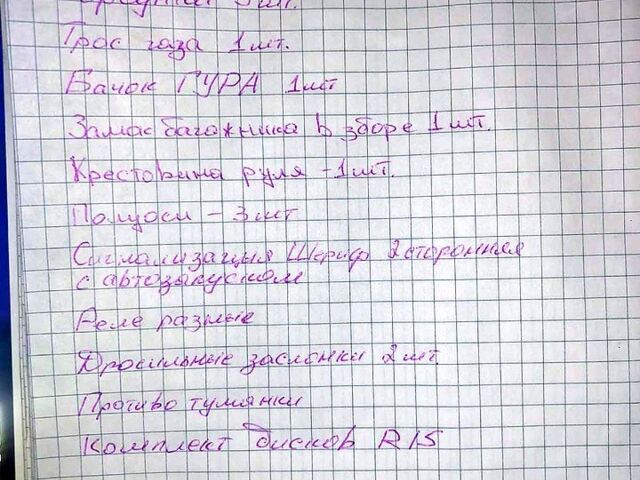 3 шт.
Трос газа 1 шт.
Бачок ГУРА 1 шт
Замас багажника в зборе 1 шт.
Крестовина руля - 1 шт.
Полуоси - 3 шт
Сигнализация Шериф 2 сторонняя
с автозапуском
Реле разные
Дросильные заслонки 2 шт
Противо туманки
Комплект дисков R15